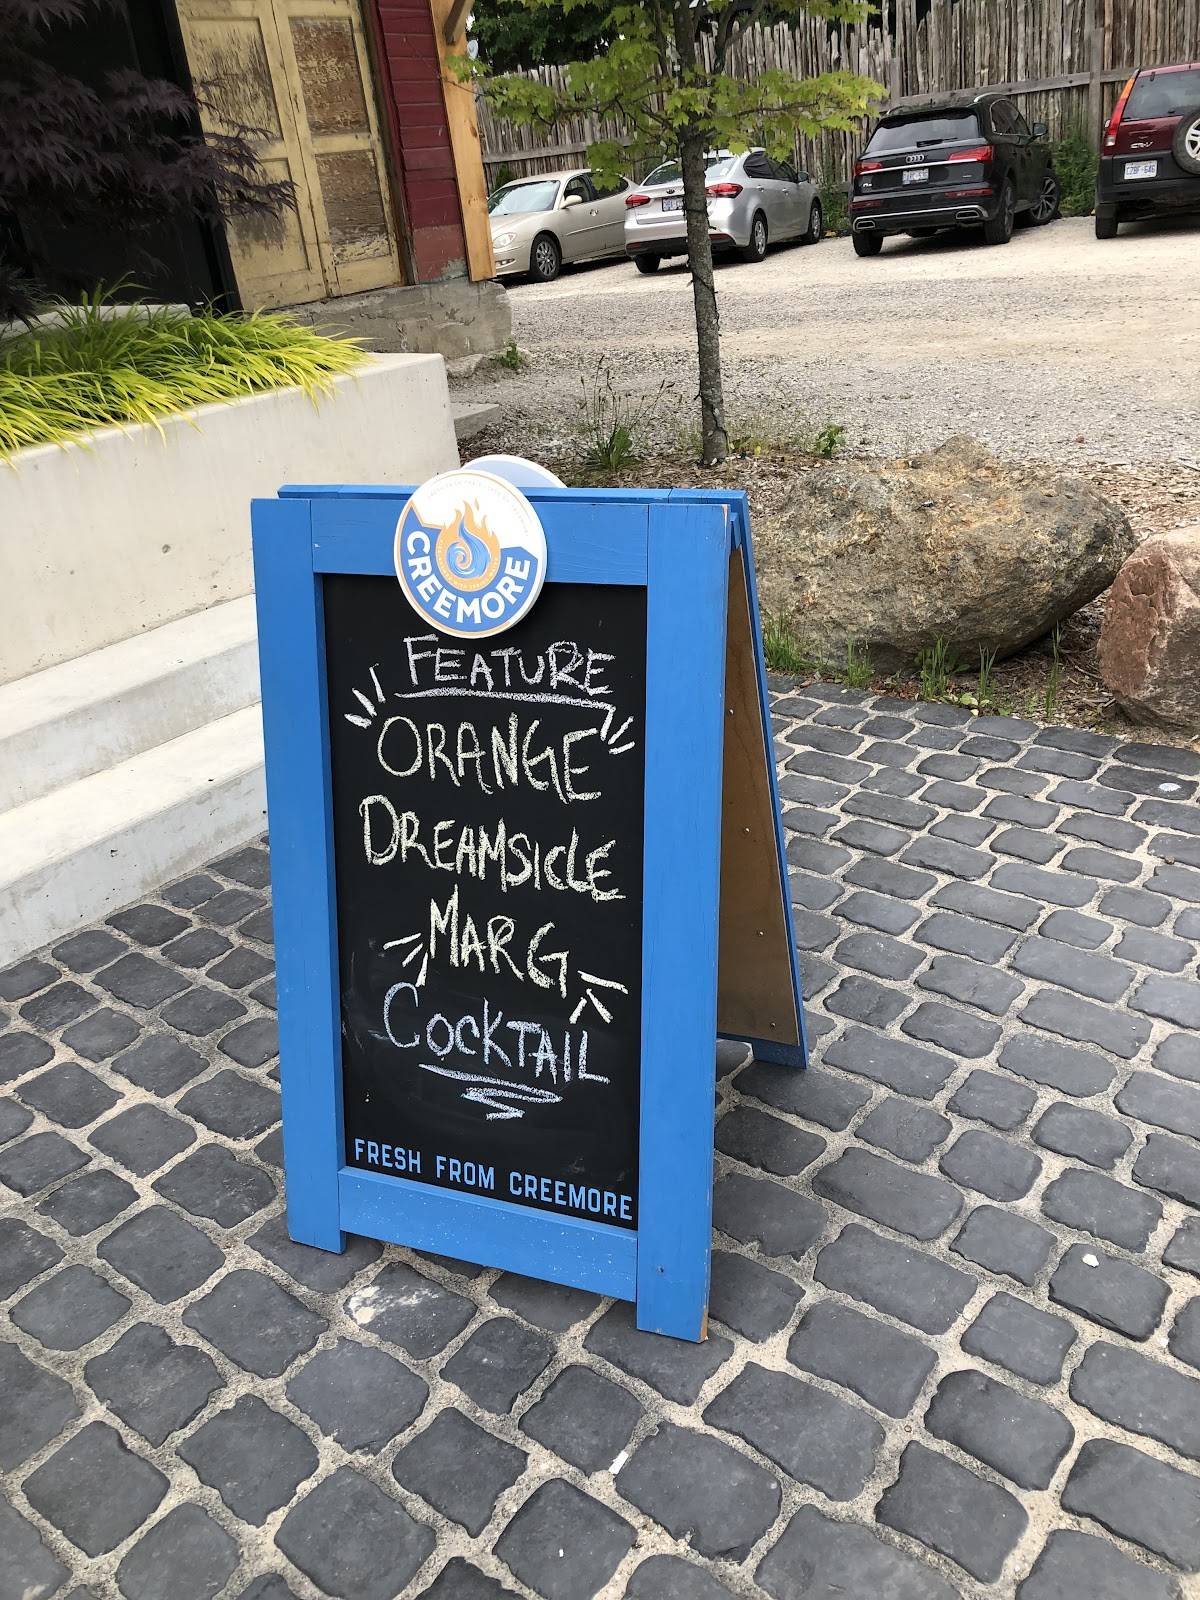 CREEMORE
FEATURE
ORANGE
DREAMSICLE
MARG
COCKTAIL
FRESH FROM CREEMORE
CR-V